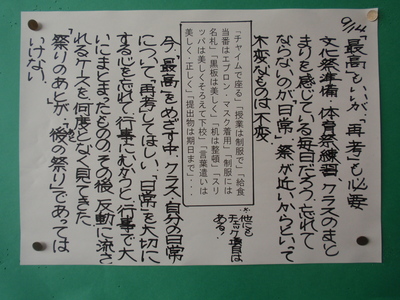 9/14
「最高」もいいが「再考」も必要
文化祭準備・体育祭練習、クラスのまと
まりを感じている毎日だろう。忘れて
ならないのが「日常」。祭が近いからといって
不変なものは不変
「チャイムで座る」「授業は制服で」「給食
当番はエプロン・マスク着用」「制服には
名札」「黒板は美しく」「机は整頓」「スリ
ッパは美しくそろえて下校」「言葉遣いは
美しく・正しく」「提出物は期日まで」・・・・
他にも
チェック項目は
ある！
今、「最高」をめざす中、クラス、自分の日常
について「再考」してほしい。「日常」を大切に
する心を忘れて行事にむかうと、行事で大
いにまとまったものの、その後、反動に流さ
れるケースを何度となく見てきた。
「祭りのあと」が、「後の祭り」であっては
いけない